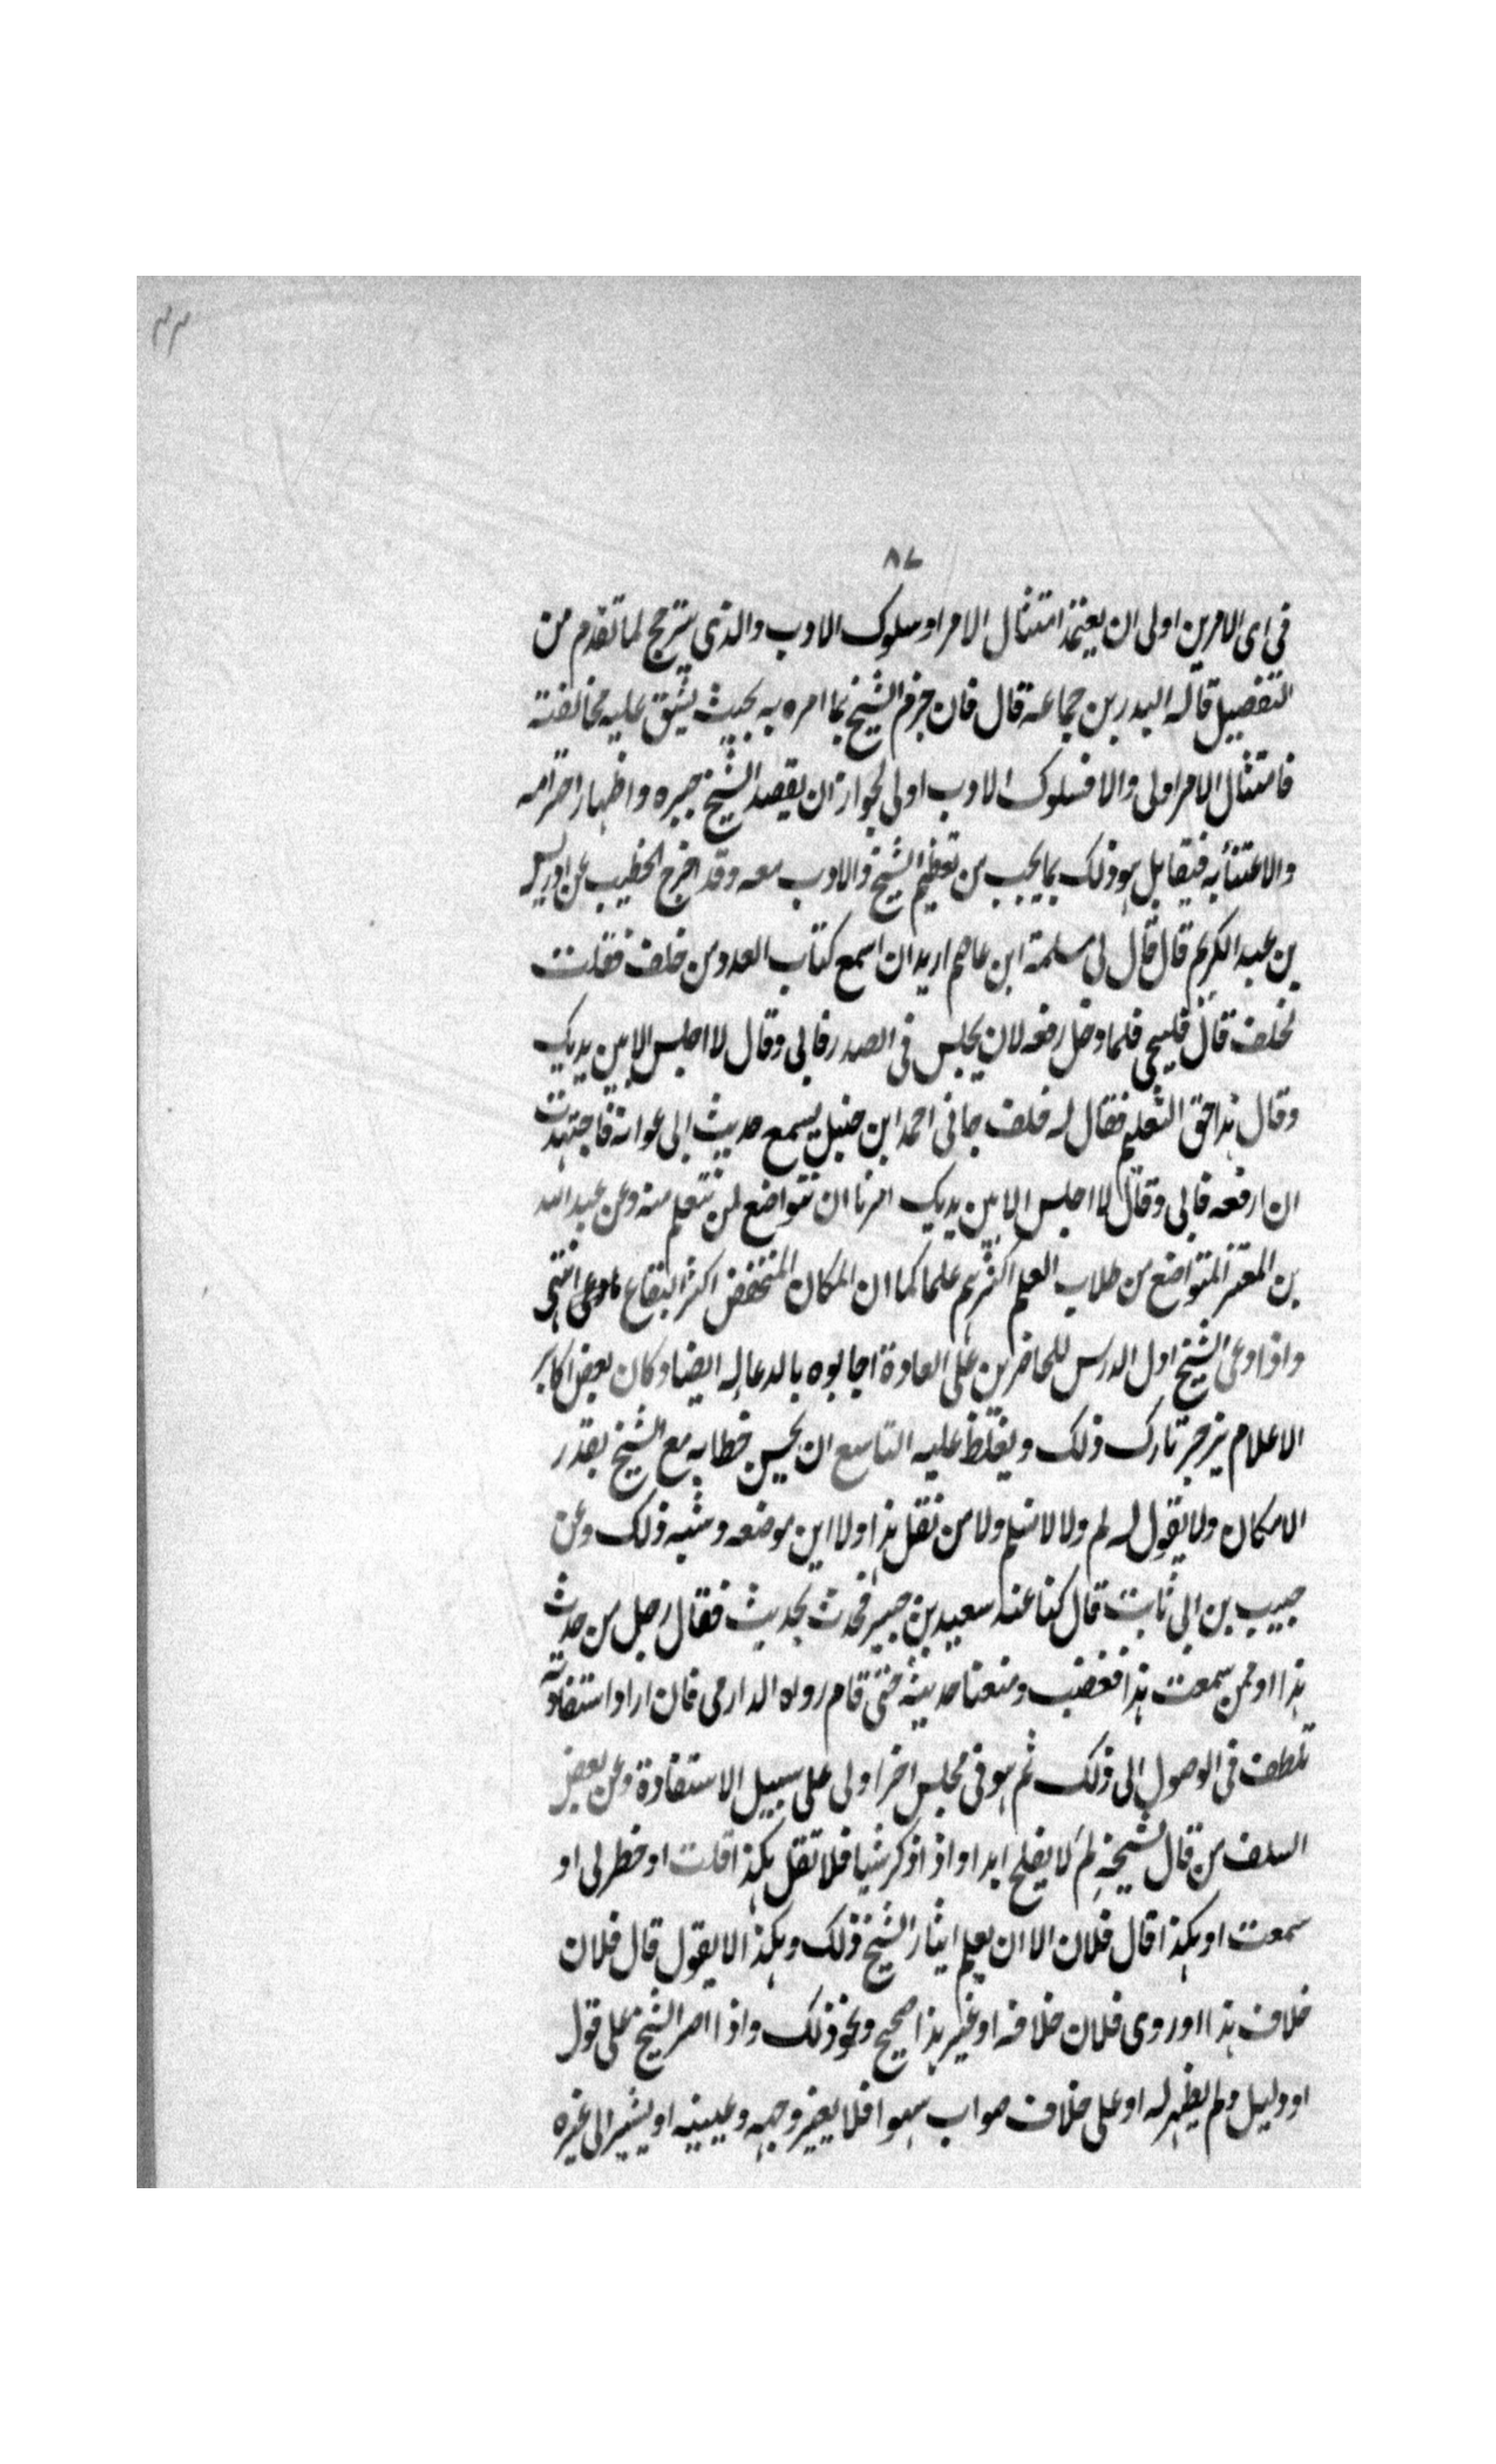 ٣٣
٨٧
فى اى الامرين اولى ان يعتمد امتثال الامر او سلوك الادب والذى يترجح لما تقدم من
التفصيل قاله البدر بن جماعة قال فان جزم الشيخ بما امره به بحيث يشق عليه مخالفته
فامتثال الامر اولى والا فسلوك الادب اولى لجواز ان يقصد الشيخ جبره واظهار احترامه
والاعتناء به فيقابل هو ذلك بما يجب من تعظيم الشيخ والادب معه وقد اخرج الخطيب عن ادريس
بن عبد الكريم قال قال لى سلمة ابن عاصم اريد ان اسمع كتاب العدد من خلف فقلت
لخلف قال فليجى فلما دخل رفعه لان يجلس فى الصدر فابى وقال لا اجلس الا بين يديك
وقال هذا حق التعليم فقال له خلف جانى احمد ابن حنبل يسمع حديث ابى عوانة فاجتهدت
ان ارفعه فابى وقال لا اجلس الا بين يديك امرنا ان نتواضع لمن نتعلم منه وعن عبد الله
بن المعتز المتواضع من طلاب العلم اكثرهم علما كما ان المكان المنخفض اكثر البقاع ماء وعى انتهى
واذا دعى الشيخ اول الدرس للحاضرين على العادة اجابوه بالدعا له ايضا وكان بعض اكابر
الاعلام يزجر تارك ذلك ويغلظ عليه التاسع ان يحسن خطابه مع الشيخ بقدر
الامكان ولا يقول له لم ولا لا نسلم ولا من نقل هذا ولا اين موضعه وشبه ذلك وعن
حبيب بن ابى ثابت قال كنا عند سعيد بن جبير فحدث بحديث فقال رجل من حدث
هذا او ممن سمعت هذا فغضب ومنعنا حديثه حتى قام رواه الدارمى فان اراد استفادته
تلطف فى الوصول الى ذلك ثم هو فى مجلس اخر اولى على سبيل الاستفادة وعن بعض
السلف من قال لشيخه لِمَ لا يفلح ابدا واذا ذكر شيا فلا تقل هكذا قلت او خطر لى او
سمعت او هكذا قال فلان الا ان يعلم ايثار الشيخ ذلك وهكذا لا يقول قال فلان
خلاف هذا او روى فلان خلافه او غير هذا صحيح ونحو ذلك واذا اصر الشيخ على قول
او دليل ولم يظهر له او على خلاف صواب سهوا فلا يغير وجهه وعينيه او يشير الى غيره